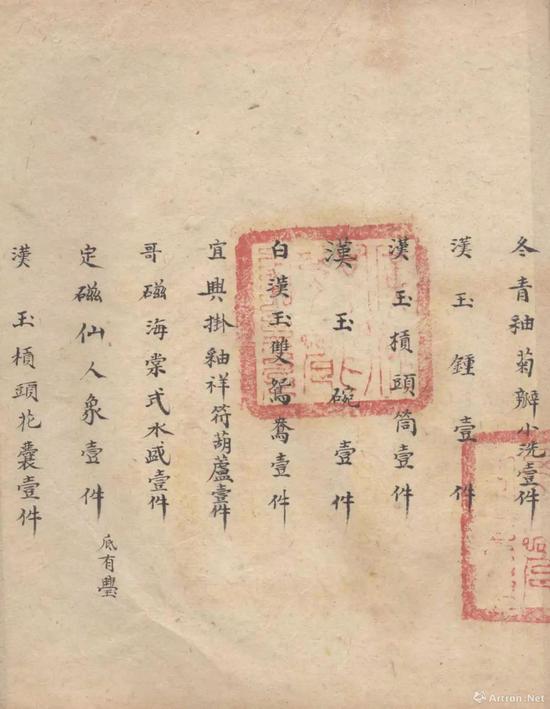 冬青釉菊瓣小洗壹件
漢玉鍾壹件
漢玉損頭筒壹件
漢玉碗壹件
白漢玉雙鴛鴦壹件
宜興掛釉祥符葫蘆壹件
哥磁海棠式水盛壹件
定磁仙人象壹件
底有璺
漢玉槓頭花囊壹件
Artron.Net